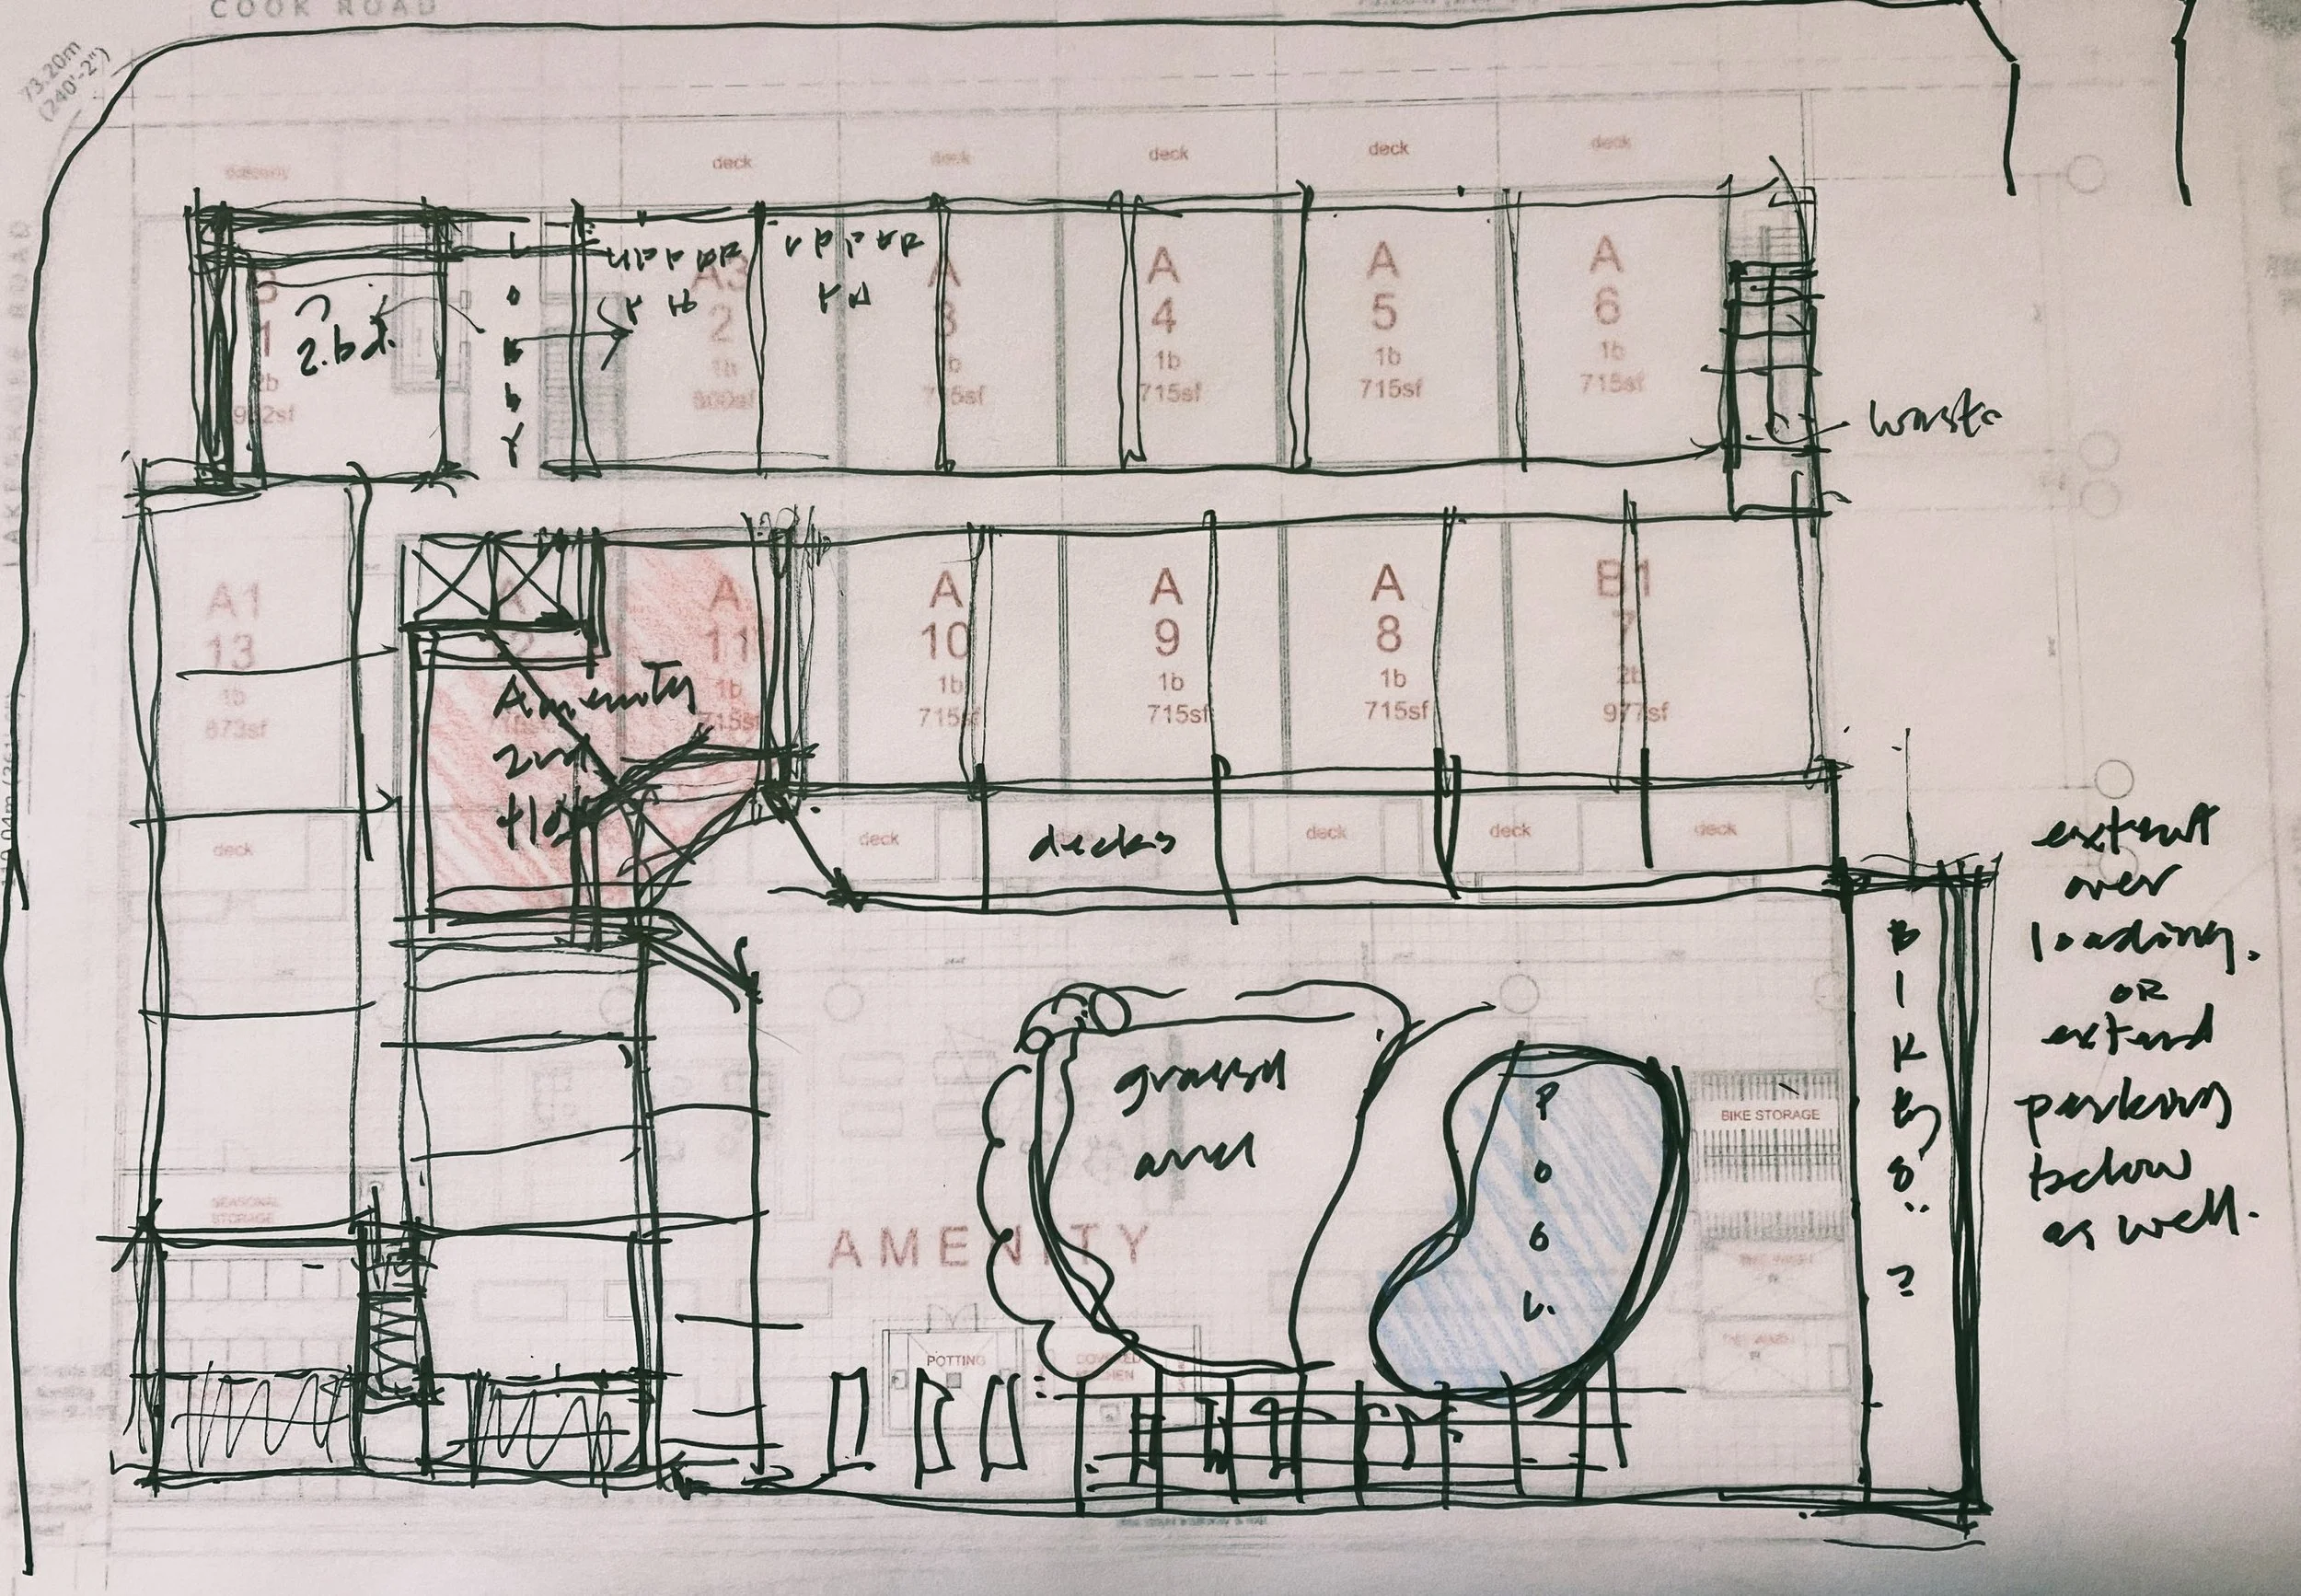 COOK ROAD
73.20m
(240'-2")
LAKESHORE ROAD
deck
deck
deck
deck
deck
L
O
B
B
Y
2.bd.
1
2b
A3
2
1b
800sf
A
3
A
4
1b
715sf
A
5
1b
715sf
A
6
1b
715sf
waste
A1
13
1b
873sf
A
11
1b
715sf
A
10
1b
715sf
A
9
1b
715sf
A
8
1b
715sf
B1
7
2b
977sf
Amenity
2nd
floor
deck
deck
decks
deck
deck
deck
extend
over
loading.
OR
extend
parking
below
as well.
B
I
K
E
S
?
grassed
area
P
O
O
L.
BIKE STORAGE
SEASONAL
STORAGE
AMENITY
POTTING
COVERED
KITCHEN